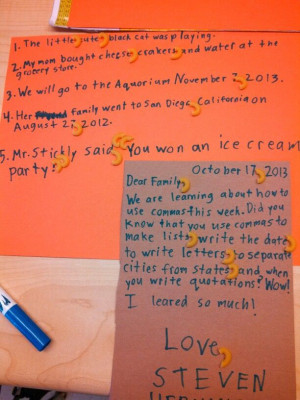 1. The little, cute, black cat was playing.
2. My mom bought cheese, crakers, and water at the
grocery store.
3. We will go to the Aquorium November 7, 2013.
4. Her family went to San Diego, California on
August 27, 2012.
5. Mr. Stickly said, "You won an ice cream
party."
October 17, 2013
Dear Family,
We are learning about how to
use commas this week. Did you
know that you use commas to
make lists, write the date,
to write letters, to separate
cities from states, and when
you write quotations? Wow!
I leared so much!
Love,
STEVEN